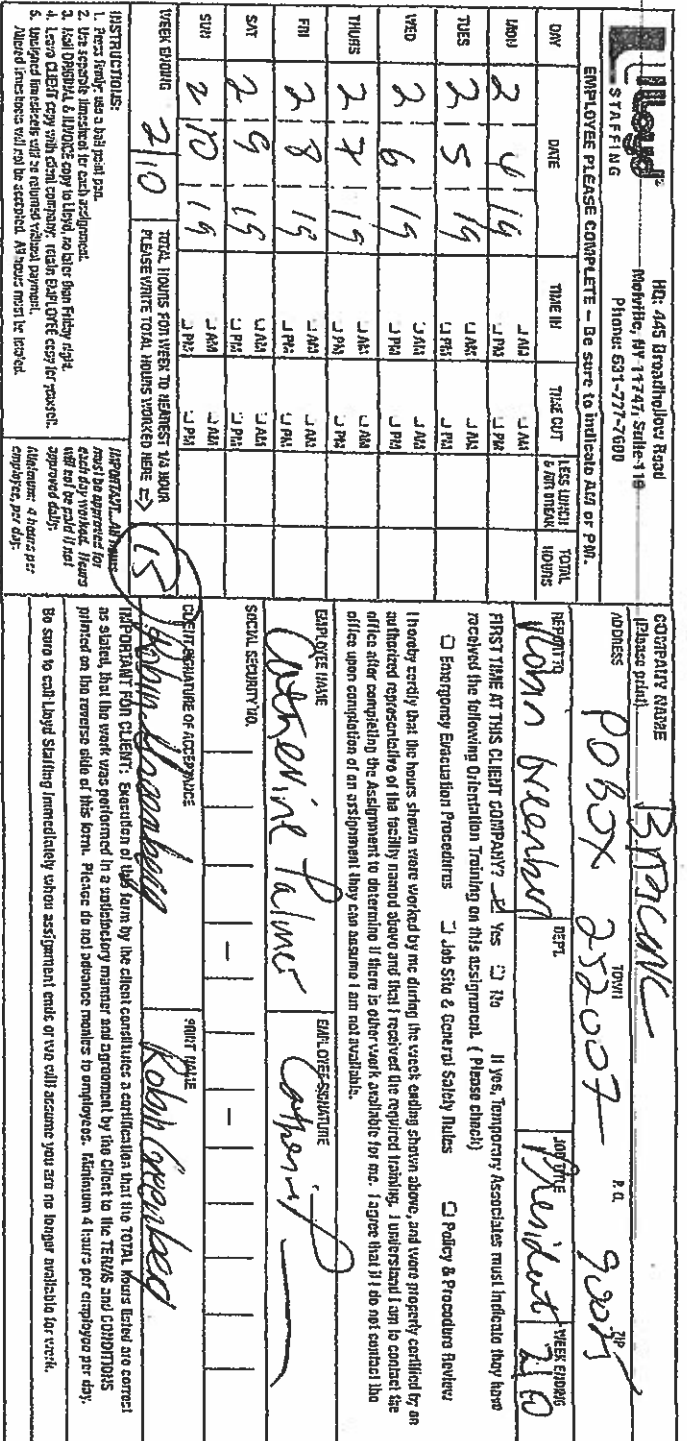 Lloyd
STAFFING
HQ: 445 Broadhollow Road
Melville, NY 11747, Suite 119
Phone: 631-777-7600
EMPLOYEE PLEASE COMPLETE – Be sure to indicate AM or PM.
DAY DATE TIME IN TIME OUT LESS LUNCH & AIR BREAK TOTAL HOURS
MON 2 4 19 AM PM AM PM
TUES 2 5 19 AM PM AM PM
WED 2 6 19 AM PM AM PM
THURS 2 7 19 AM PM AM PM
FRI 2 8 19 AM PM AM PM
SAT 2 9 19 AM PM AM PM
SUN 2 10 19 AM PM AM PM
WEEK ENDING 2/10 TOTAL HOURS FOR WEEK TO NEAREST 1/4 HOUR
PLEASE WRITE TOTAL HOURS WORKED HERE => 15
INSTRUCTIONS:
1. Press firmly; use a ball point pen.
2. Use separate timesheet for each assignment.
3. Mail ORIGINAL & INVOICE copy to Lloyd, no later than Friday night.
4. Leave CLIENT copy with client company; retain EMPLOYEE copy for yourself.
5. Unsigned timesheets will be returned without payment.
Altered timesheets will not be accepted. All hours must be totaled.
IMPORTANT...All hours
must be approved for
each day worked. Hours
will not be paid if not
approved daily.
Minimum: 4 hours per
employee, per day.
COMPANY NAME
(Please print)
ADDRESS PO BOX 252007 TOWN P.O. ZIP
REPORT TO DEPT. JOB TITLE President WEEK ENDING 2/10
FIRST TIME AT THIS CLIENT COMPANY? Yes No If yes, Temporary Associates must indicate they have
received the following Orientation Training on this assignment. (Please check)
Emergency Evacuation Procedures Job Site & General Safety Rules Policy & Procedure Review
I hereby certify that the hours shown were worked by me during the week ending shown above, and were properly certified by an
authorized representative of the facility named above and that I received the required training. I understand I am to contact the
office after completing the Assignment to determine if there is other work available for me. I agree that if I do not contact the
office upon completion of an assignment they can assume I am not available.
EMPLOYEE NAME EMPLOYEE SIGNATURE
Catherine Palmer
SOCIAL SECURITY NO.
CLIENT SIGNATURE OF ACCEPTANCE PRINT NAME
IMPORTANT FOR CLIENT: Execution of this form by the client constitutes a certification that the TOTAL Hours listed are correct
as stated, that the work was performed in a satisfactory manner and agreement by the Client to the TERMS and CONDITIONS
printed on the reverse side of this form. Please do not advance monies to employees. Minimum 4 hours per employee per day.
Be sure to call Lloyd Staffing immediately when assignment ends or we will assume you are no longer available for work.